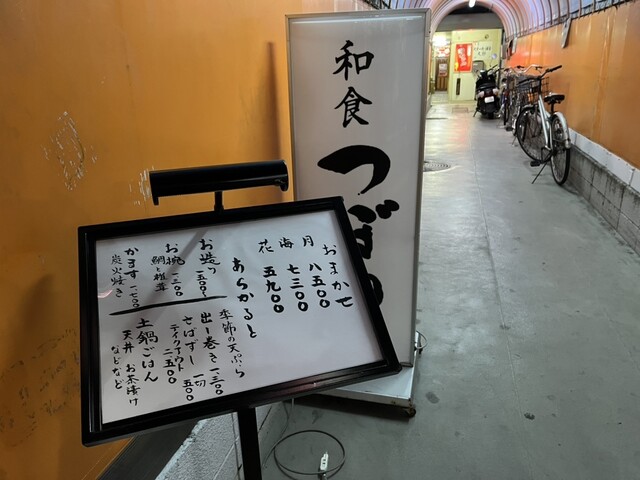 和食
つば
おまかせ
月 八五〇〇
海 七三〇〇
花 五九〇〇
あらかると
お造り 一五〇〇〜
お椀 鯛と椎茸 一二〇〇
かます炭火焼き 一七〇〇
季節の天ぷら
出し巻き 一三〇〇
さばずし 一切 五〇〇
テイクアウト 二五〇〇
土鍋ごはん
天丼 お茶漬け
などなど